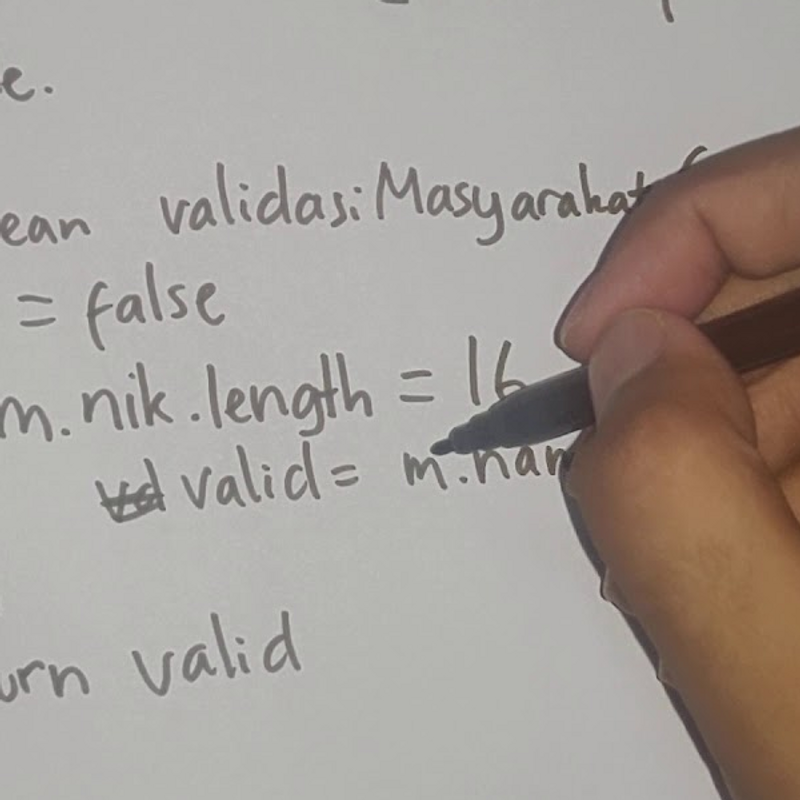 e.
ean validasiMasyarakat (
= false
m.nik.length = 16
valid = m.nam
urn valid